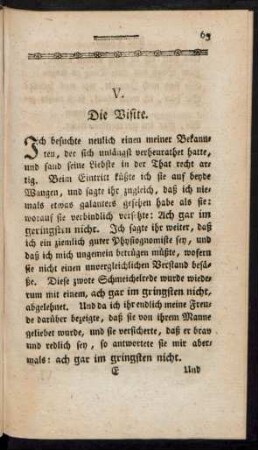 65
V.
Die Visite.
Ich besuchte neulich einen meiner Bekann-
ten, der sich unlängst verheurathet hatte,
und fand seine Liebste in der That recht ar-
tig. Beim Eintritt küßte ich sie auf beyde
Wangen, und sagte ihr zugleich, daß ich nie-
mals etwas galanters gesehen habe als sie:
worauf sie verbindlich versetzte: Ach gar im
geringsten nicht. Ich sagte ihr weiter, daß
ich ein ziemlich guter Physiognomiste sey, und
daß ich mich ungemein betrügen müßte, wofern
sie nicht einen unvergleichlichen Verstand besäs-
se. Diese zwote Schmeichelrede wurde wiede-
rum mit einem, ach gar im gringsten nicht,
abgelehnet. Und da ich ihr endlich meine Freu-
de darüber bezeigte, daß sie von ihrem Manne
geliebet wurde, und sie versicherte, daß er brav
und redlich sey, so antwortete sie mir aber-
mals: ach gar im gringsten nicht.
E Und